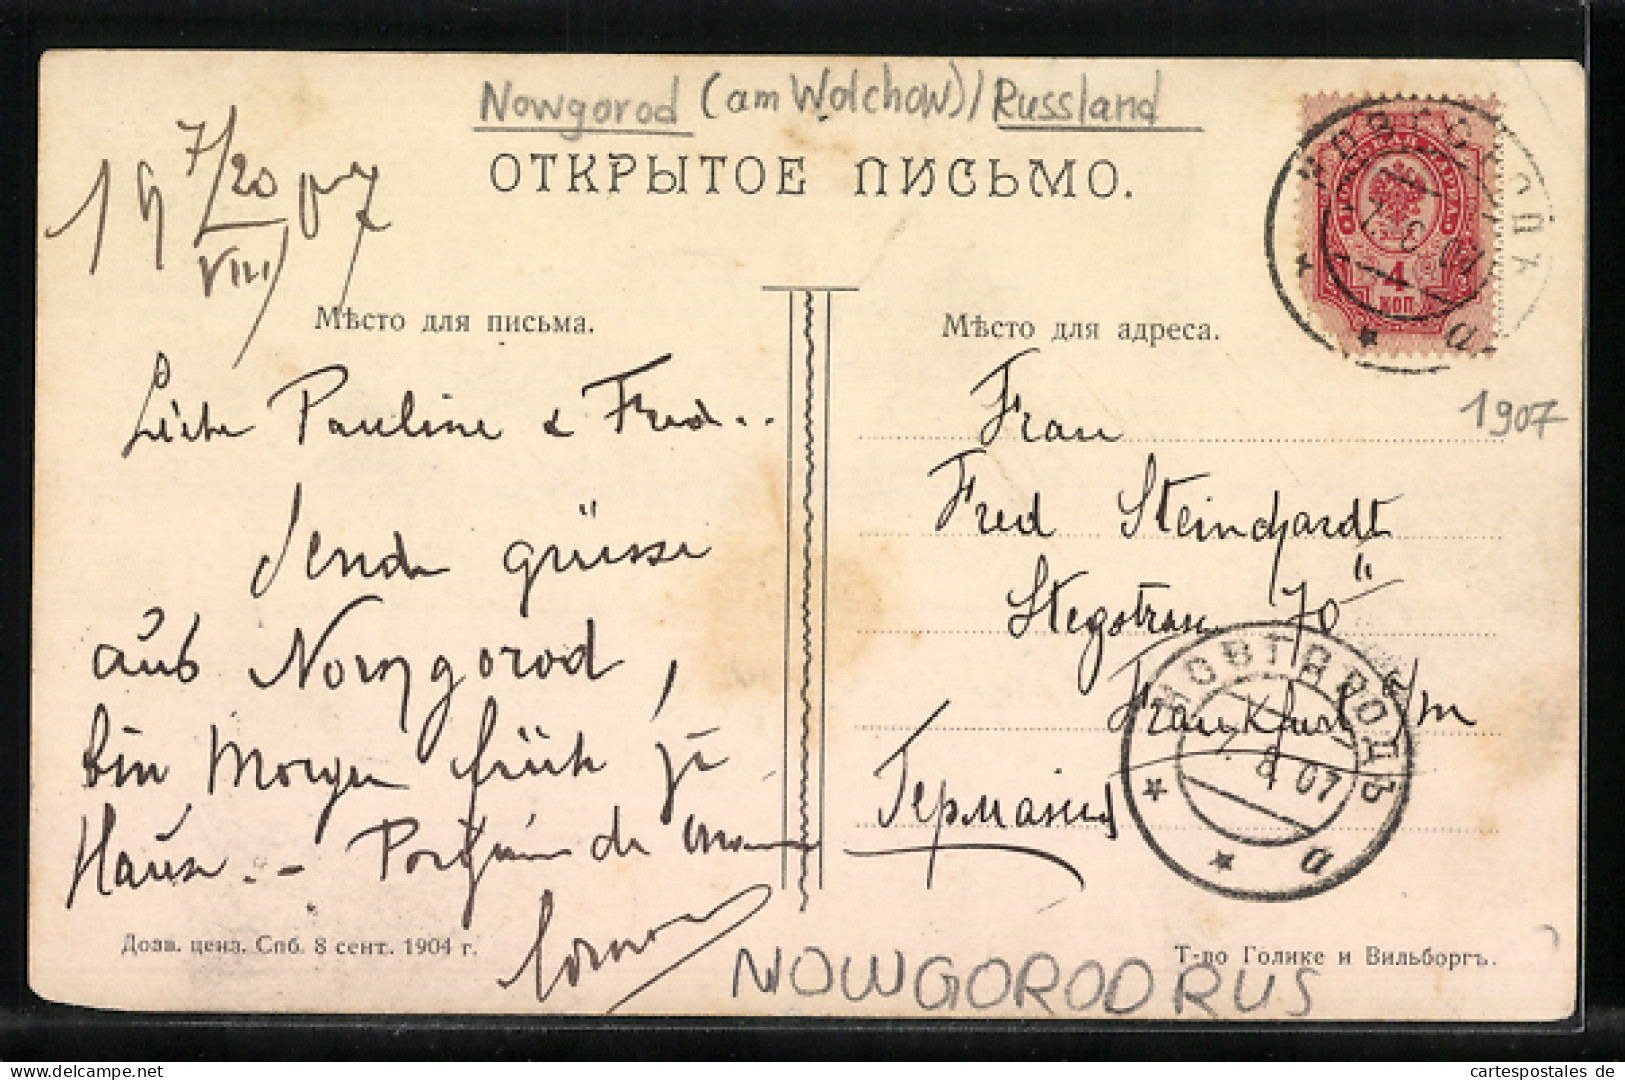 Nowgorod (am Wolchow)/Russland
ОТКРЫТОЕ ПИСЬМО.
19 7/20 VIII 07
Мѣсто для письма.
Liebe Pauline & Fred..
Sende grüsse
aus Nowgorod,
bin Morgen früh zu
Hause. -
Дозв. ценз. Спб. 8 сент. 1904 г.
Мѣсто для адреса.
4
КОП
1907
Frau
Fred Steinhardt
70 II
Frankfurt a/m
Германия
НОВГОРОДЪ
7. 8. 07
Т-во Голике и Вильборгъ.
NOWGOROD RUS
www.cartedefrance.fr
cartespostales de